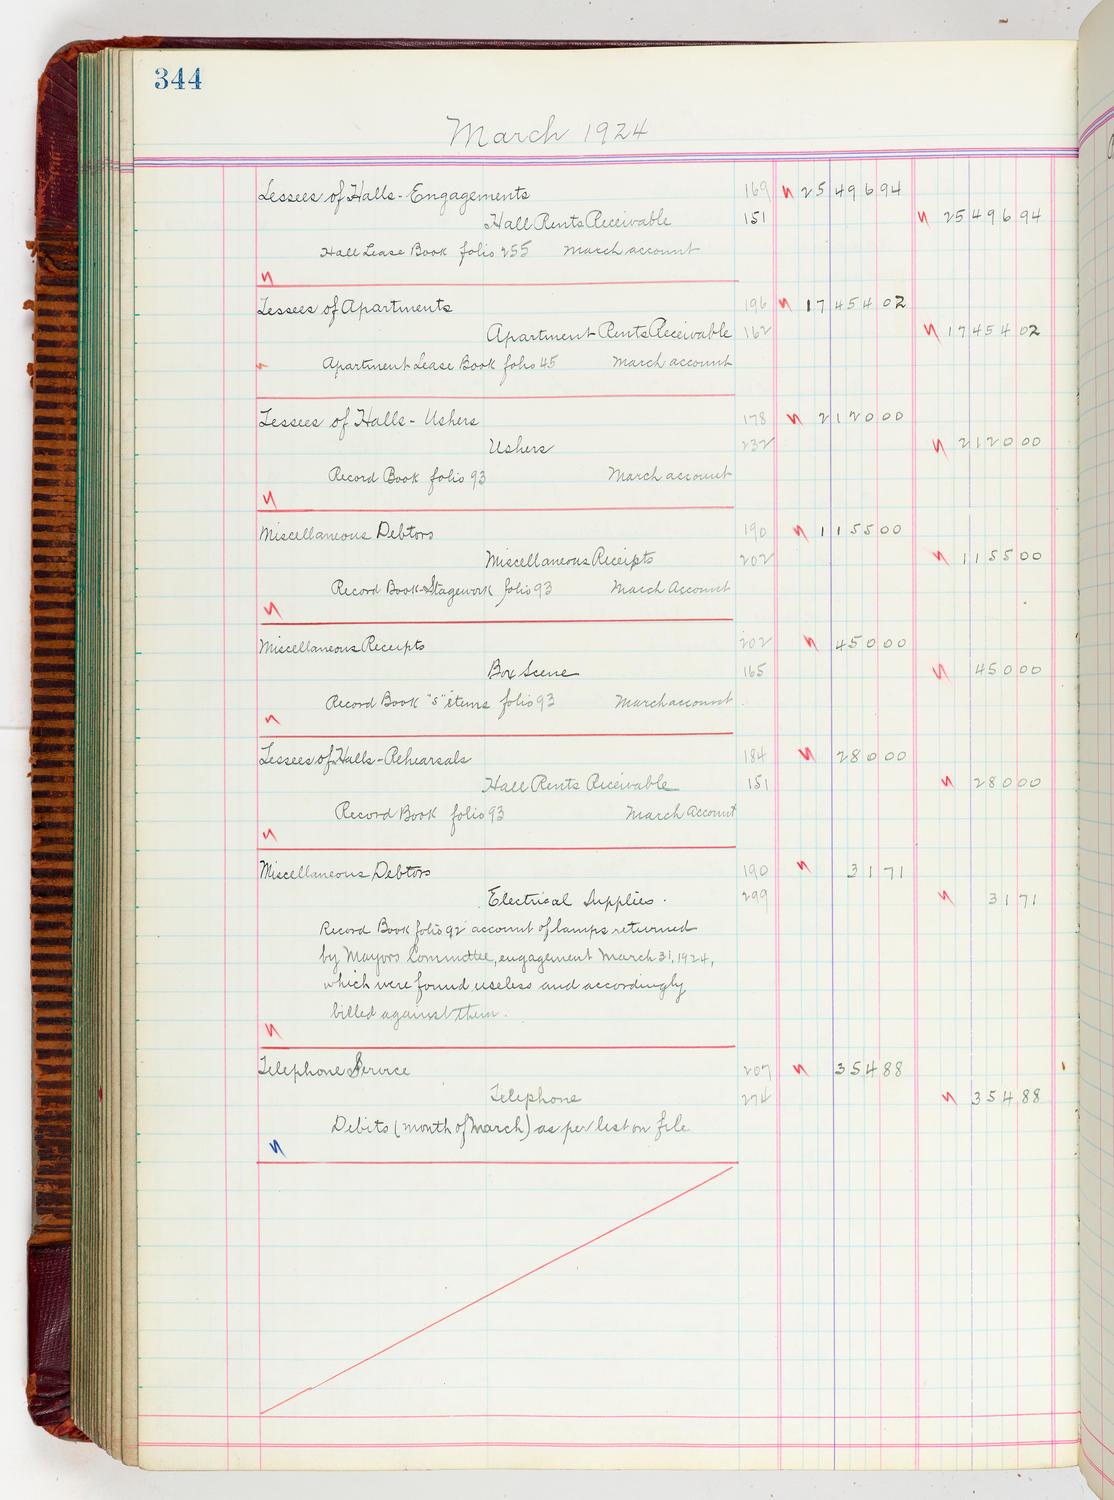 344
March 1924
Lessees of Halls - Engagements 169 25 496 94
Hall Rents Receivable 151 25 496 94
Hall Lease Book folio 255 March account
Lessees of Apartments 196 17 454 02
Apartment Rents Receivable 162 17 454 02
Apartment Lease Book folio 45 March account
Lessees of Halls - Ushers 178 2 120 00
Ushers 232 2 120 00
Record Book folio 93 March account
Miscellaneous Debtors 190 1 155 00
Miscellaneous Receipts 202 1 155 00
Record Book-Stagework folio 93 March Account
Miscellaneous Receipts 202 450 00
Box Scene 165 450 00
Record Book "S" items folio 93 March account
Lessees of Halls - Rehearsals 184 280 00
Hall Rents Receivable 151 280 00
Record Book folio 93 March Account
Miscellaneous Debtors 190 31 71
Electrical Supplies. 299 31 71
Record Book folio 92 account of lamps returned
by Mayors Committee, engagement March 31, 1924,
which were found useless and accordingly
billed against them.
Telephone Service 207 354 88
Telephone 274 354 88
Debits (month of March) as per list on file